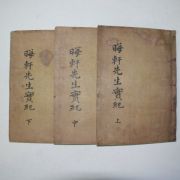 晦軒先生實紀 上
晦軒先生實紀 中
晦軒先生實紀 下